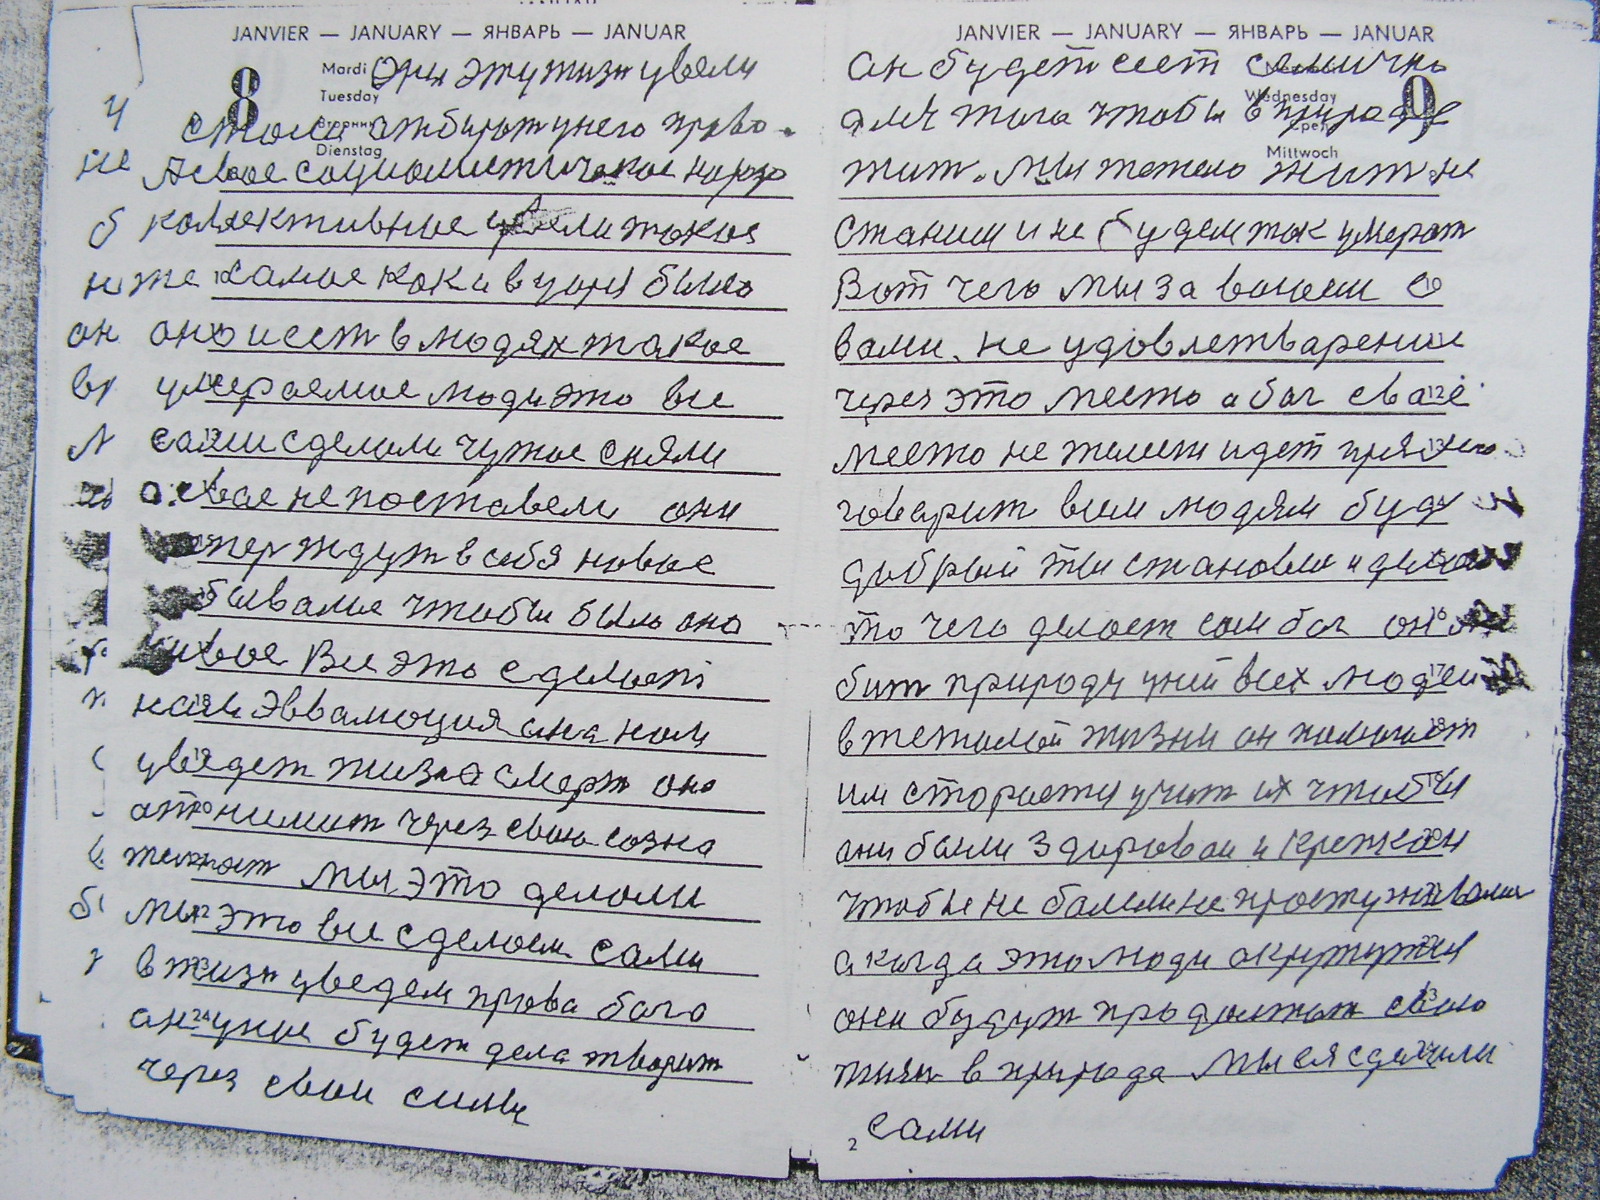 JANVIER — JANUARY — ЯНВАРЬ — JANUAR
8
Mardi
Tuesday
Вторник
Dienstag
эту жизн увели
стала отбират у него право.
А свое социолистическое
колективное увели такое
самое как и в царя было
оно и сест в людях такое
умераемое люди это все
сами сделали чужое сняли
а свае не поставели они
ждут в себя новае
бывалае чтобы было оно
живое Все это сделает
нам Эвалюция она нам
уведет жизн а смерт она
атнимит через свою созна
телност мы это делали
мы это все сделоем сами
в жизн уведем права бога
он у нас будет дела творит
через свои силы
2
JANVIER — JANUARY — ЯНВАРЬ — JANUAR
9
Mercredi
Wednesday
Среда
Mittwoch
ан будет сест самично
для тога чтобы в природе
жит. мы тежело жит не
станим и не будем так умерат
Вот чего мы за воюем с
вами. не удовлетварение
через это место а бог сваё
место не жилет идет
говарит всем людям буд
добрый ты становис и делай
то чего делает сам бог он лю
бит природу у ней всех людей
в тежолой жизни он помогает
им стораетця учит их чтобы
ани были здароваи и крепкаи
чтобы не балели не простужавалис
а когда это люди окружутця
они будут продолжат свою
жизн в природе мы ея сделали
сами